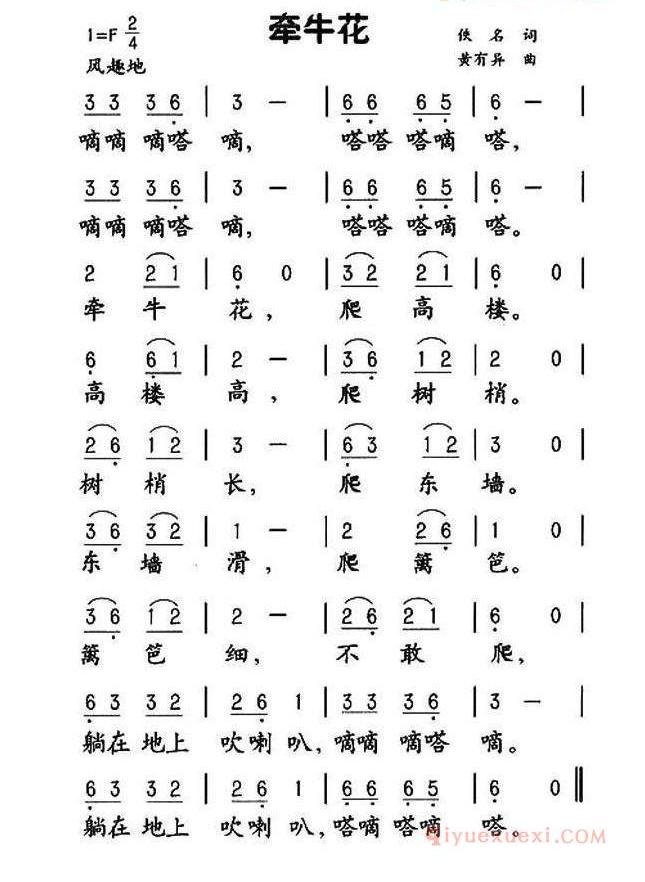 牵牛花
1=F 2/4
佚名 词
风趣地
黄有异 曲
3 3 3 6 | 3 — | 6 6 6 5 | 6 — |
嘀嘀 嘀嗒 嘀, 嗒嗒 嗒嘀 嗒,
3 3 3 6 | 3 — | 6 6 6 5 | 6 — |
嘀嘀 嘀嗒 嘀, 嗒嗒 嗒嘀 嗒。
2 2 1 | 6 0 | 3 2 2 1 | 6 0 |
牵 牛 花, 爬 高 楼。
6 6 1 | 2 — | 3 6 1 2 | 2 0 |
高 楼 高, 爬 树 梢。
2 6 1 2 | 3 — | 6 3 1 2 | 3 0 |
树 梢 长, 爬 东 墙。
3 6 3 2 | 1 — | 2 2 6 | 1 0 |
东 墙 滑, 爬 篱 笆。
3 6 1 2 | 2 — | 2 6 2 1 | 6 0 |
篱 笆 细, 不 敢 爬,
6 3 3 2 | 2 6 1 | 3 3 3 6 | 3 — |
躺在 地上 吹喇 叭, 嘀嘀 嘀嗒 嘀。
6 3 3 2 | 2 6 1 | 6 6 6 5 | 6 0 ‖
躺在 地上 吹喇 叭, 嗒嘀 嗒嘀 嗒。
qiyuexuexi.com